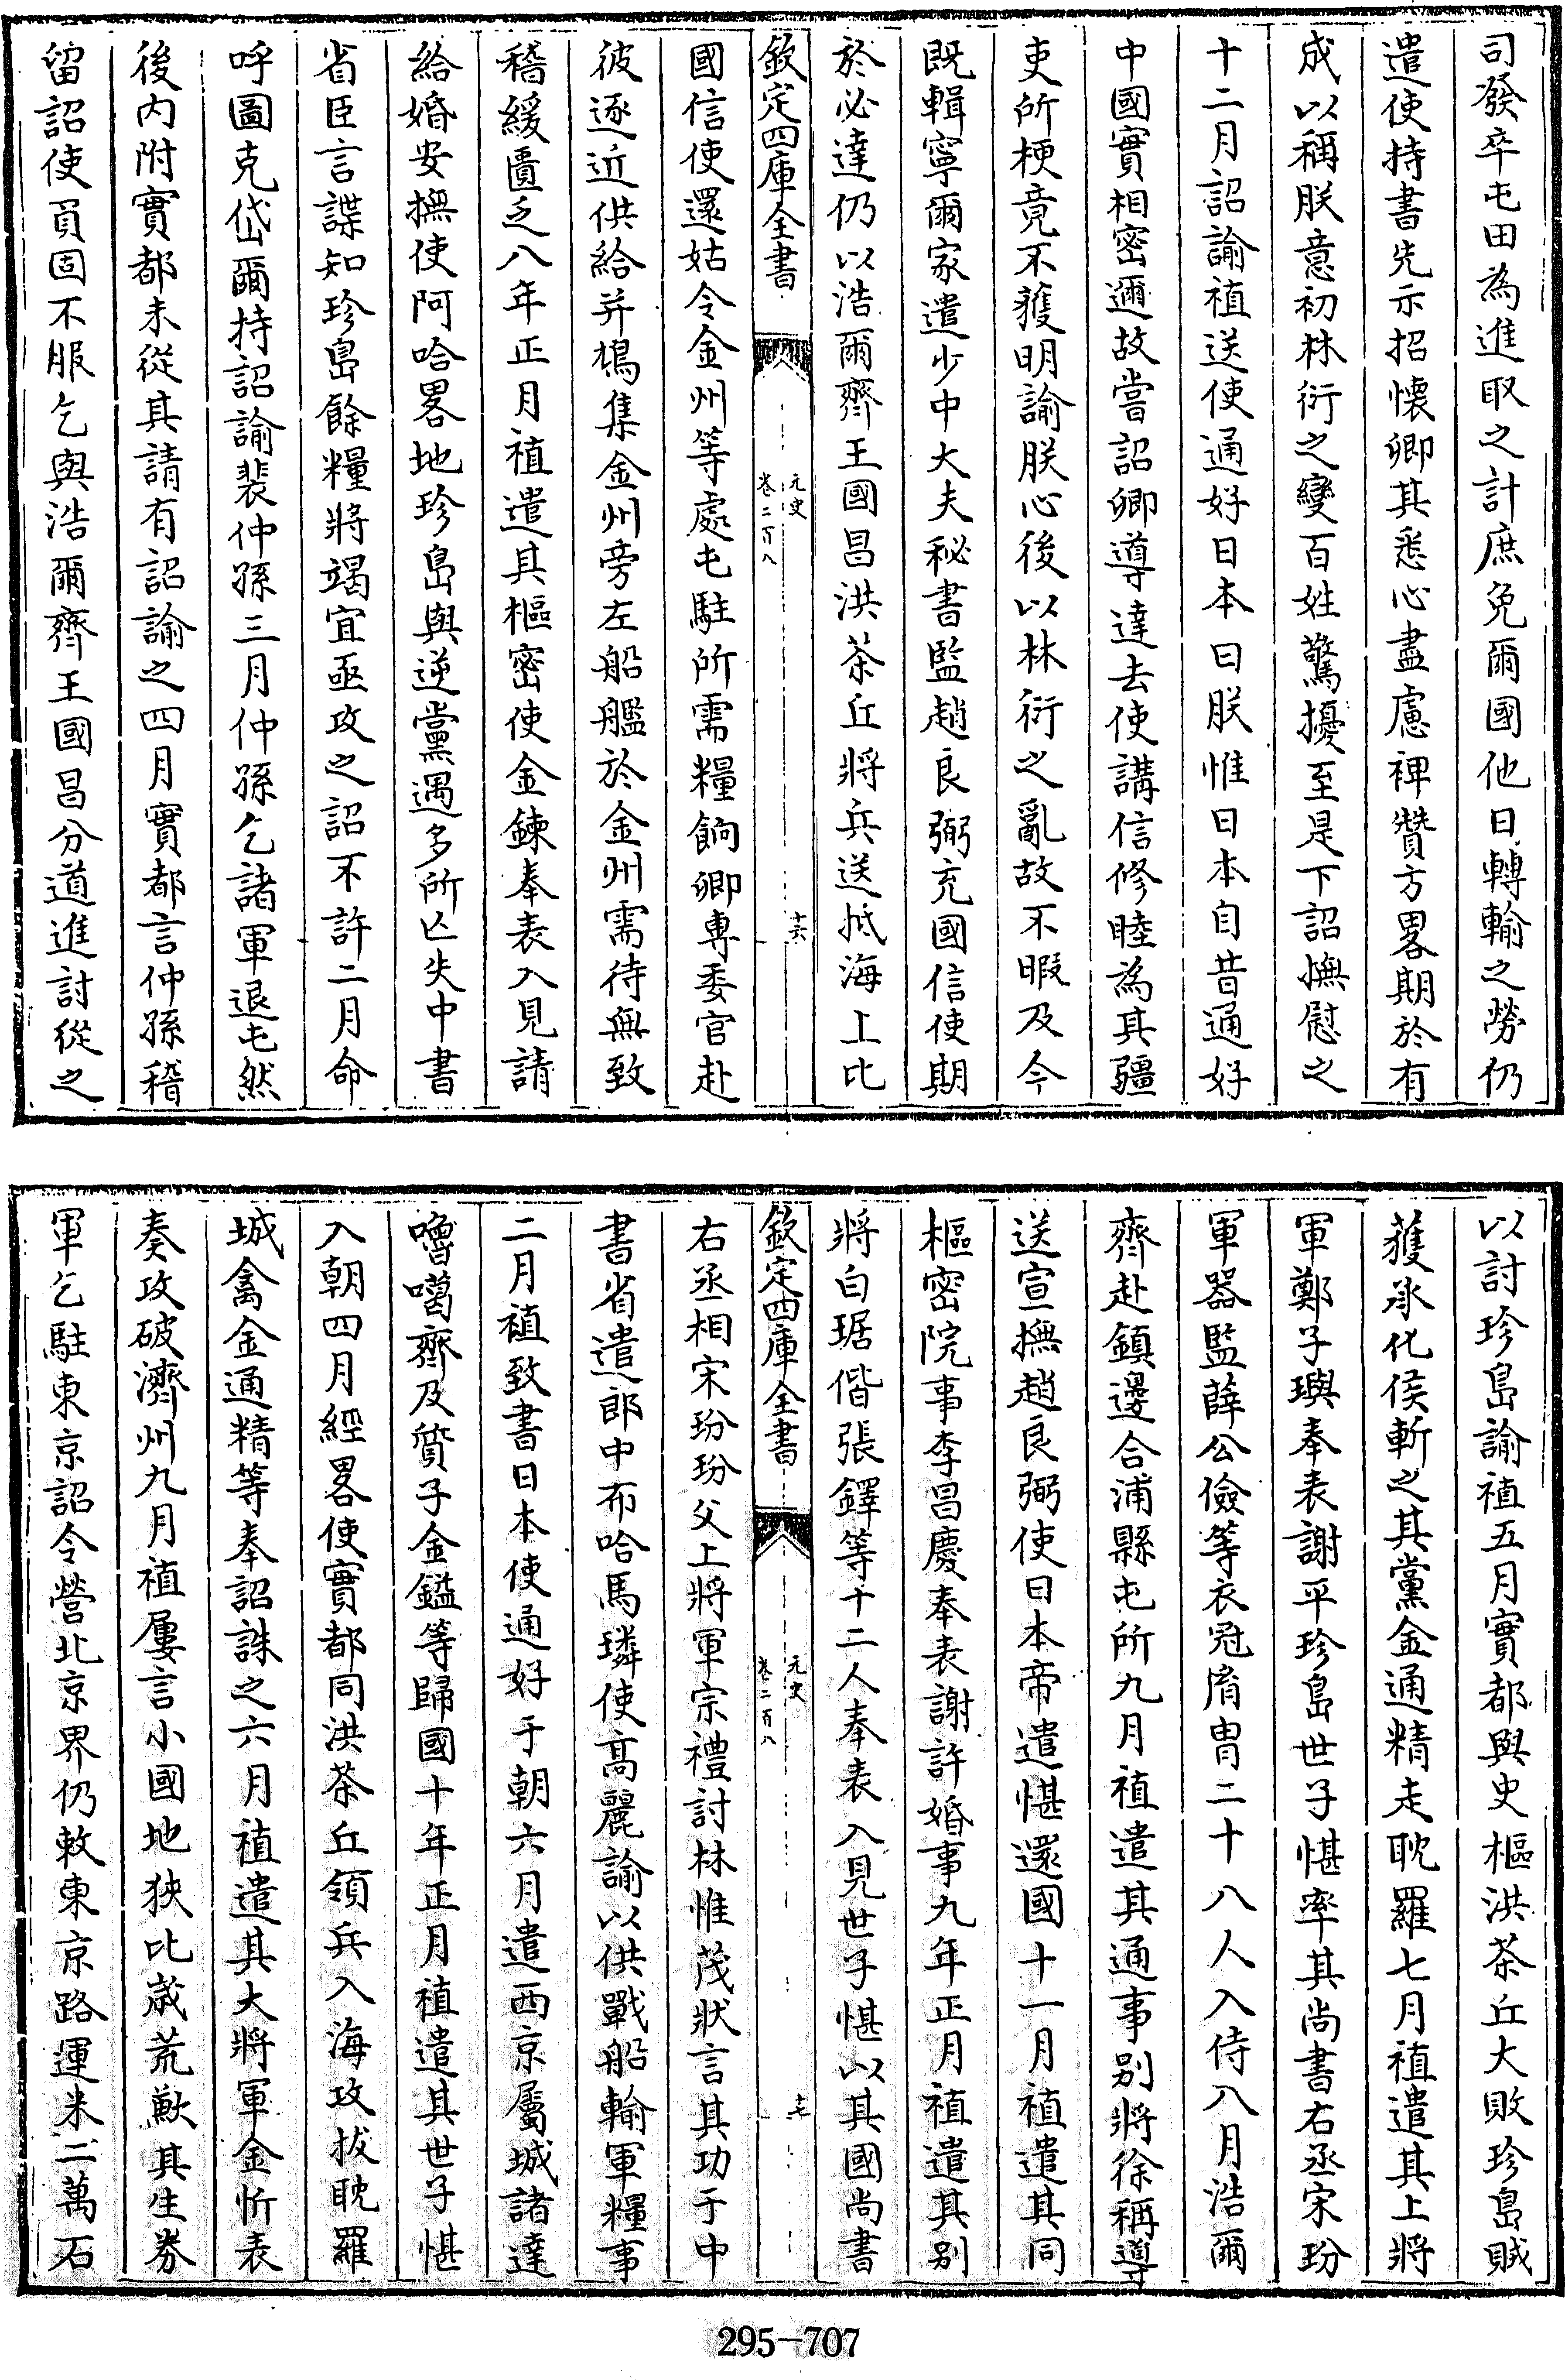 司發卒屯田為進取之計庶免爾國他日轉輸之勞仍
遣使持書先示招懷卿其悉心盡慮裨贊方畧期於有
成以稱朕意初林衍之變百姓驚擾至是下詔撫慰之
十二月詔諭禃送使通好日本曰朕惟日本自昔通好
中國實相密邇故嘗詔卿導達去使講信修睦為其疆
吏所梗竟不獲明諭朕心後以林衍之亂故不暇及今
既輯寧爾家遣少中大夫秘書監趙良弼充國信使期
於必達仍以浩爾齊王國昌洪茶丘將兵送抵海上比
欽定四庫全書
元史
卷二百八
十六
國信使還姑令金州等處屯駐所需糧餉卿專委官赴
彼逐近供給并鳩集金州旁左船艦於金州需待無致
稽緩匱乏八年正月禃遣其樞密使金鍊奉表入見請
給婚安撫使阿哈畧地珍島與逆黨遇多所亡失中書
省臣言諜知珍島餘糧將竭宜亟攻之詔不許二月命
呼圖克岱爾持詔諭裴仲孫三月仲孫乞諸軍退屯然
後内附實都未從其請有詔諭之四月實都言仲孫稽
留詔使負固不服乞與浩爾齊王國昌分道進討從之
以討珍島諭禃五月實都與史樞洪茶丘大敗珍島賊
獲承化侯斬之其黨金通精走耽羅七月禃遣其上將
軍鄭子璵奉表謝平珍島世子愖率其尚書右丞宋玢
軍器監薛公儉等衣冠胄冑二十八人入侍八月浩爾
齊赴鎮邊合浦縣屯所九月禃遣其通事别將徐稱導
送宣撫趙良弼使日本帝遣愖還國十一月禃遣其同
樞密院事李昌慶奉表謝許婚事九年正月禃遣其别
將白琚偕張鐸等十二人奉表入見世子愖以其國尚書
欽定四庫全書
元史
卷二百八
十七
右丞相宋玢玢父上將軍宗禮討林惟茂狀言其功于中
書省遣郎中布哈馬璘使高麗諭以供戰船輸軍糧事
二月禃致書日本使通好于朝六月遣西京屬城諸達
嚕噶齊及質子金鎰等歸國十年正月禃遣其世子愖
入朝四月經畧使實都同洪茶丘領兵入海攻拔耽羅
城禽金通精等奉詔誅之六月禃遣其大將軍金忻表
奏攻破濟州九月禃屢言小國地狹比歲荒歉其生券
軍乞駐東京詔令營北京界仍敕東京路運米二萬石
295-707